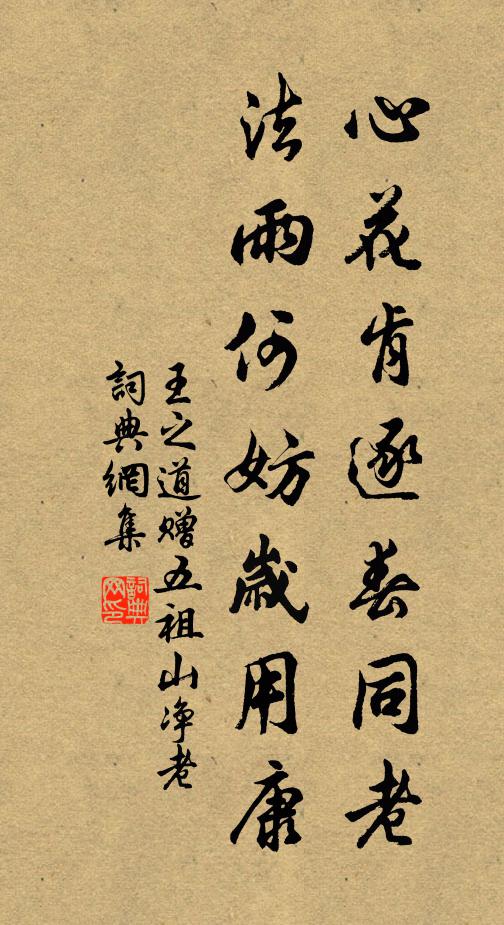 心花肯逐春同老
法雨何妨歲用康
王之道贈五祖山净老
詞典網集
詞典網印